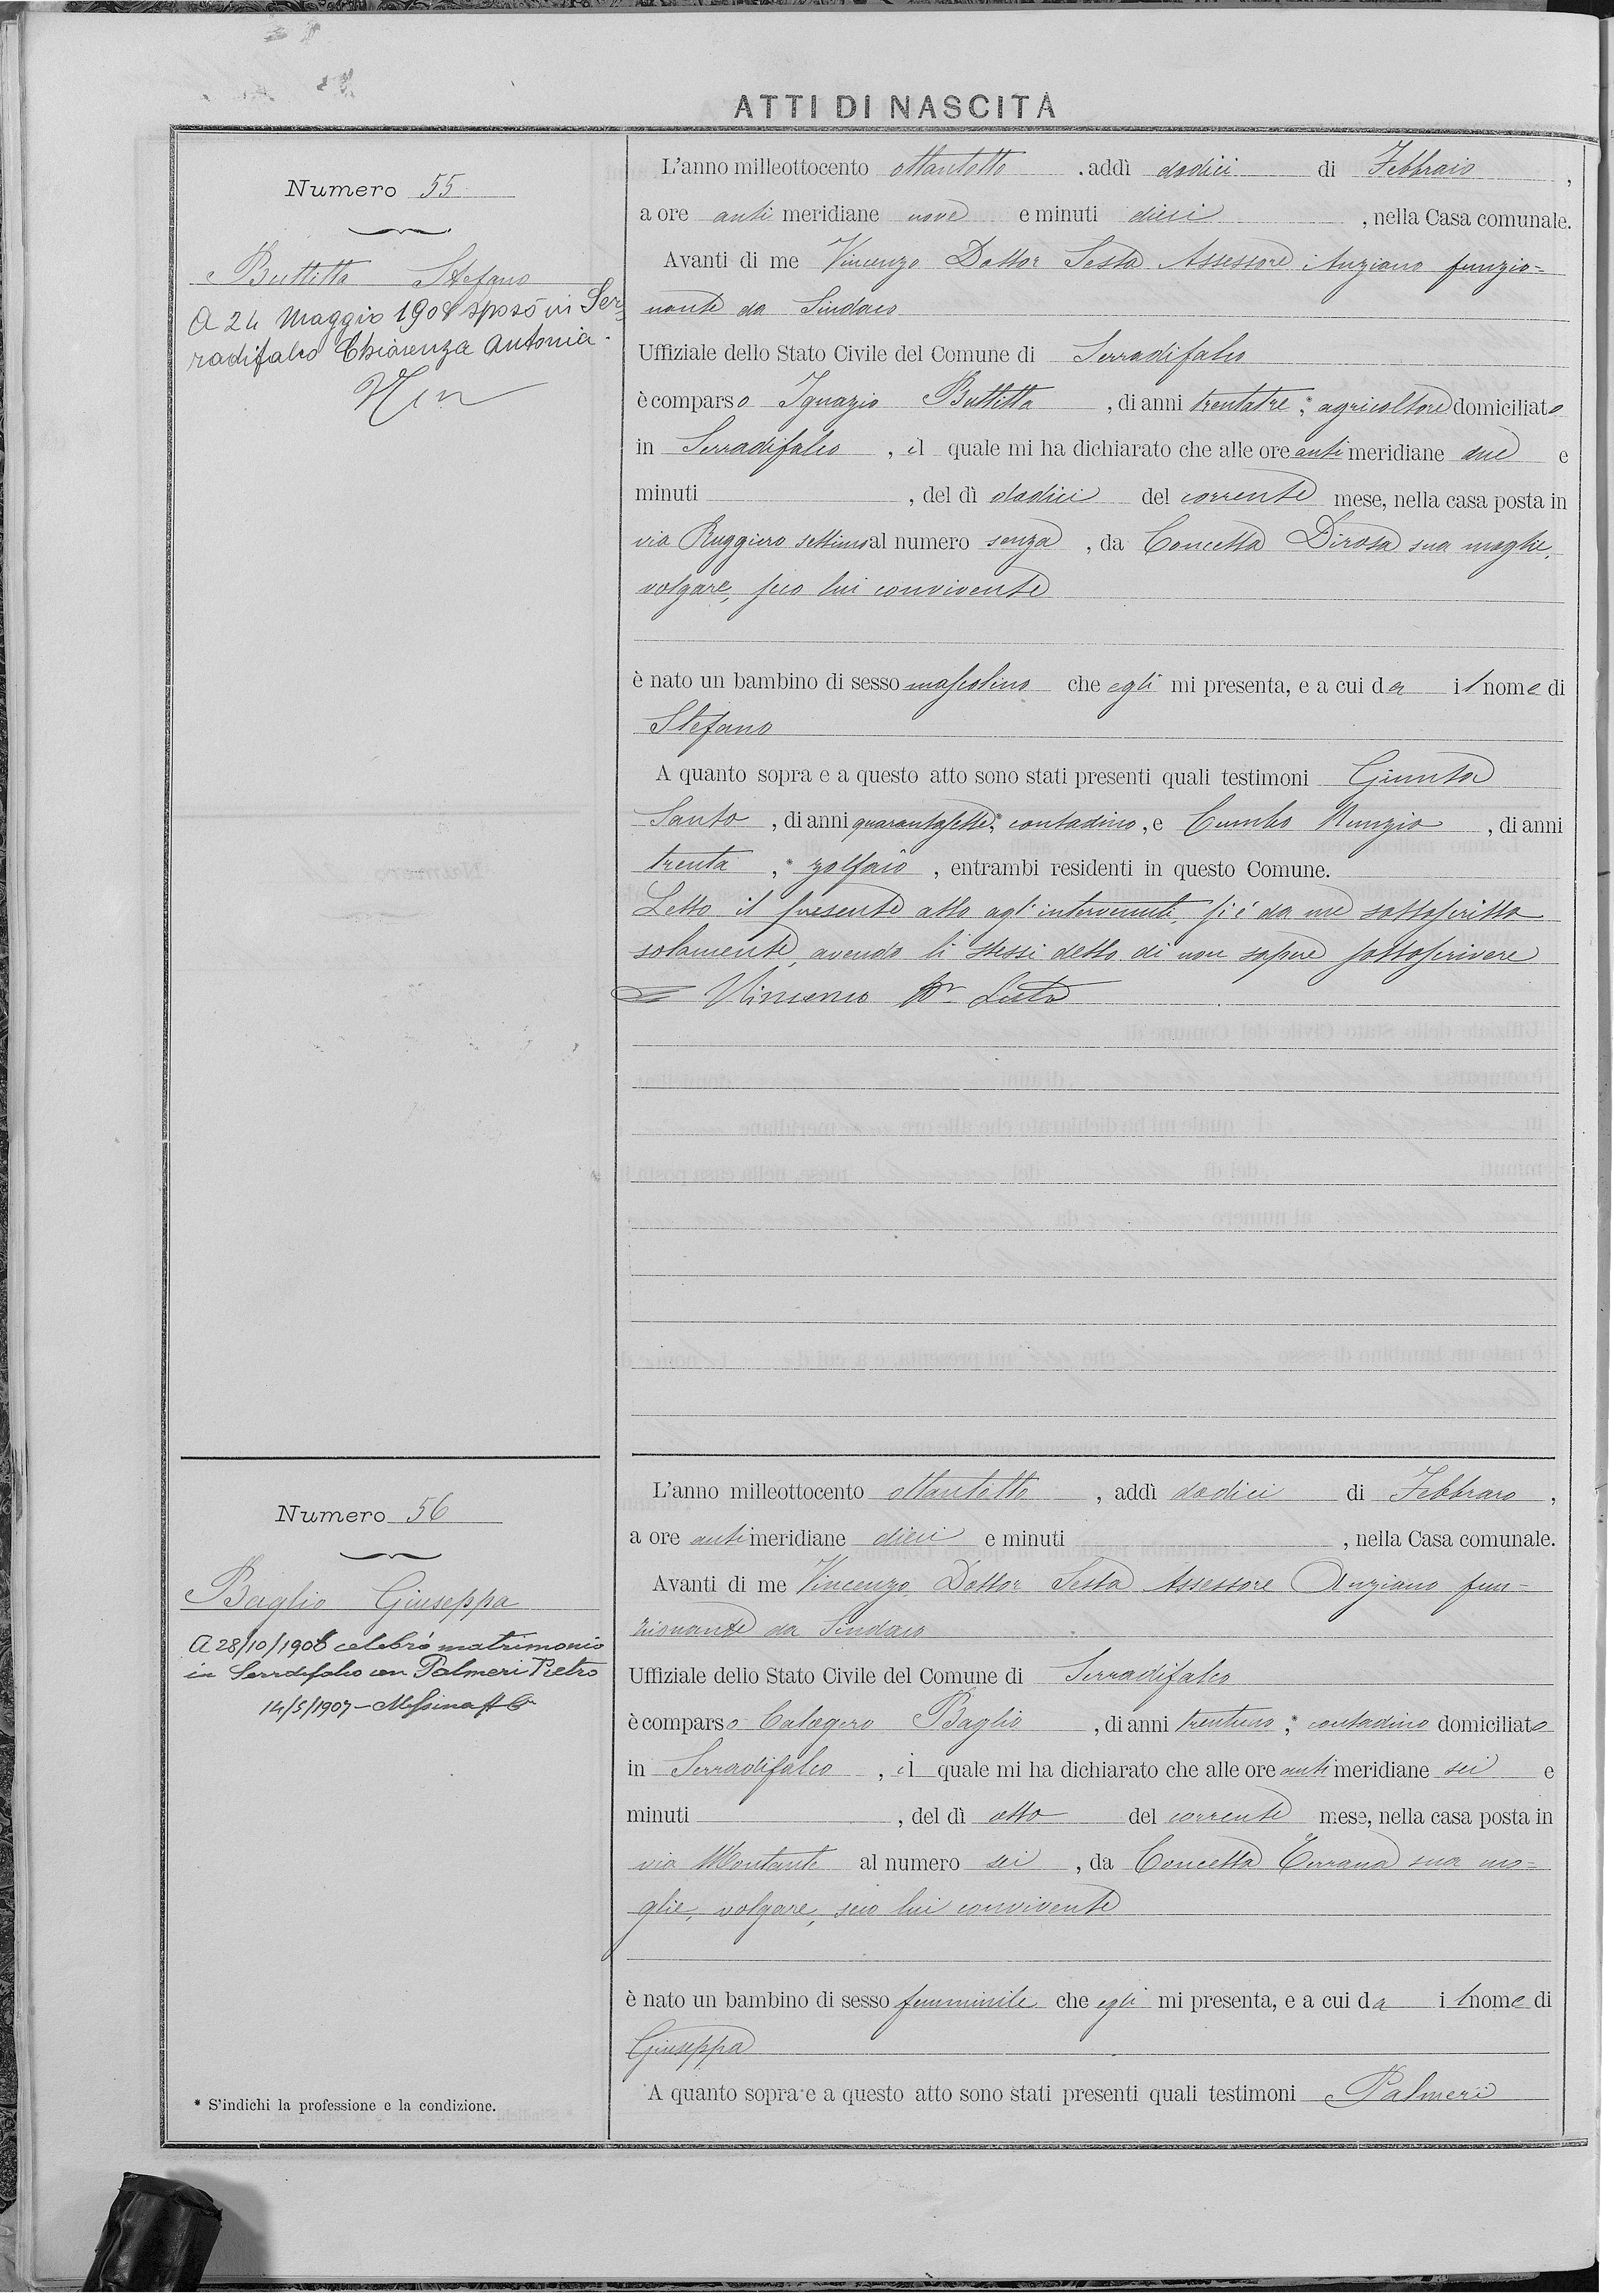 ATTI DI NASCITA
Numero 55
Buttitta Stefano
A 24 Maggio 1908 sposò in Ser
radifalco Chiarenza Antonia.
L'anno milleottocento ottantotto, addì dodici di Febbraio,
a ore anti meridiane nove e minuti dieci, nella Casa comunale.
Avanti di me Vincenzo Dottor Testa Assessore Anziano funzio=
nante da Sindaco
Uffiziale dello Stato Civile del Comune di Serradifalco
è comparso Ignazio Buttitta, di anni trentatre,* agricoltore domiciliato
in Serradifalco, il quale mi ha dichiarato che alle ore anti meridiane due e
minuti, del dì dodici del corrente mese, nella casa posta in
via Ruggiero settimo al numero senza, da Concetta Dirosa sua moglie,
volgare, seco lui convivente
è nato un bambino di sesso mascolino che egli mi presenta, e a cui da il nome di
Stefano
A quanto sopra e a questo atto sono stati presenti quali testimoni Giunta
Santo, di anni quarantasette,* contadino, e Cumbo Nunzio, di anni
trenta,* zolfaio, entrambi residenti in questo Comune.
Letto il presente atto agl'intervenuti, si è da me sottoscritto
solamente, avendo li stessi detto di non sapere sottoscrivere
Vincenzo Dr Testa
Numero 56
Baglio Giuseppa
A 28/10/1906 celebrò matrimonio
in Serradifalco con Palmeri Pietro
14/5/1907 - Messina
L'anno milleottocento ottantotto, addì dodici di Febbraro,
a ore antimeridiane dieci e minuti, nella Casa comunale.
Avanti di me Vincenzo Dottor Testa Assessore Anziano fun-
zionante da Sindaco
Uffiziale dello Stato Civile del Comune di Serradifalco
è comparso Calogero Baglio, di anni trentuno,* contadino domiciliato
in Serradifalco, il quale mi ha dichiarato che alle ore antimeridiane sei e
minuti, del dì otto del corrente mese, nella casa posta in
via Montante al numero sei, da Concetta Terrana sua mo=
glie, volgare, seco lui convivente
è nato un bambino di sesso femminile che egli mi presenta, e a cui da il nome di
Giuseppa
A quanto sopra e a questo atto sono stati presenti quali testimoni Palmeri
* S'indichi la professione e la condizione.